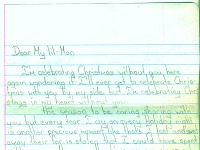 Dear My lil' Man,
I'm celebrating Christmas without you here
again wondering if I'll ever get to celebrate Christ-
mas with you by my side but I'm celebrating
stays in my heart without you.
the season to be caring, sharing with
you but every tear I cry on every holiday night
is another precious moment like that's lost and
away their lor is stating that I could have spent